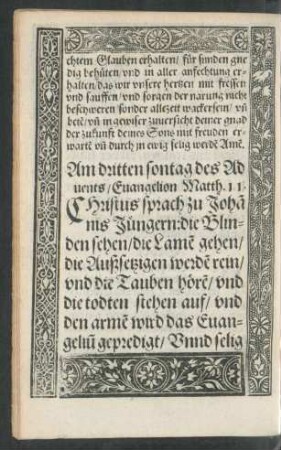 chtem Glauben erhalten/ für sünden gne
dig behüten/ vnd in aller anfechtung er-
halten/ das wir vnsere hertzen mit fressen
vnd sauffen/ vnd sorgen der narung nicht
beschweren sonder allezeit wacker sein/ vñ
betẽ/ vñ in gewiser zuuersicht deiner gnad
der zukunfft deines Sons mit freuden er-
wartẽ vñ durch jn ewig selig werdẽ Amẽ.
Am dritten sontag des Ad
uents/ Euangelion Matth. 11.
CHristus sprach zu Johã
nis Jüngern: die Blin-
den sehen/ die Lamẽ gehen/
die Außsetzigen werdẽ rein/
vnd die Tauben hörẽ/ vnd
die todten stehen auf/ vnd
den armẽ wird das Euan-
geliũ gepredigt/ Vnnd selig